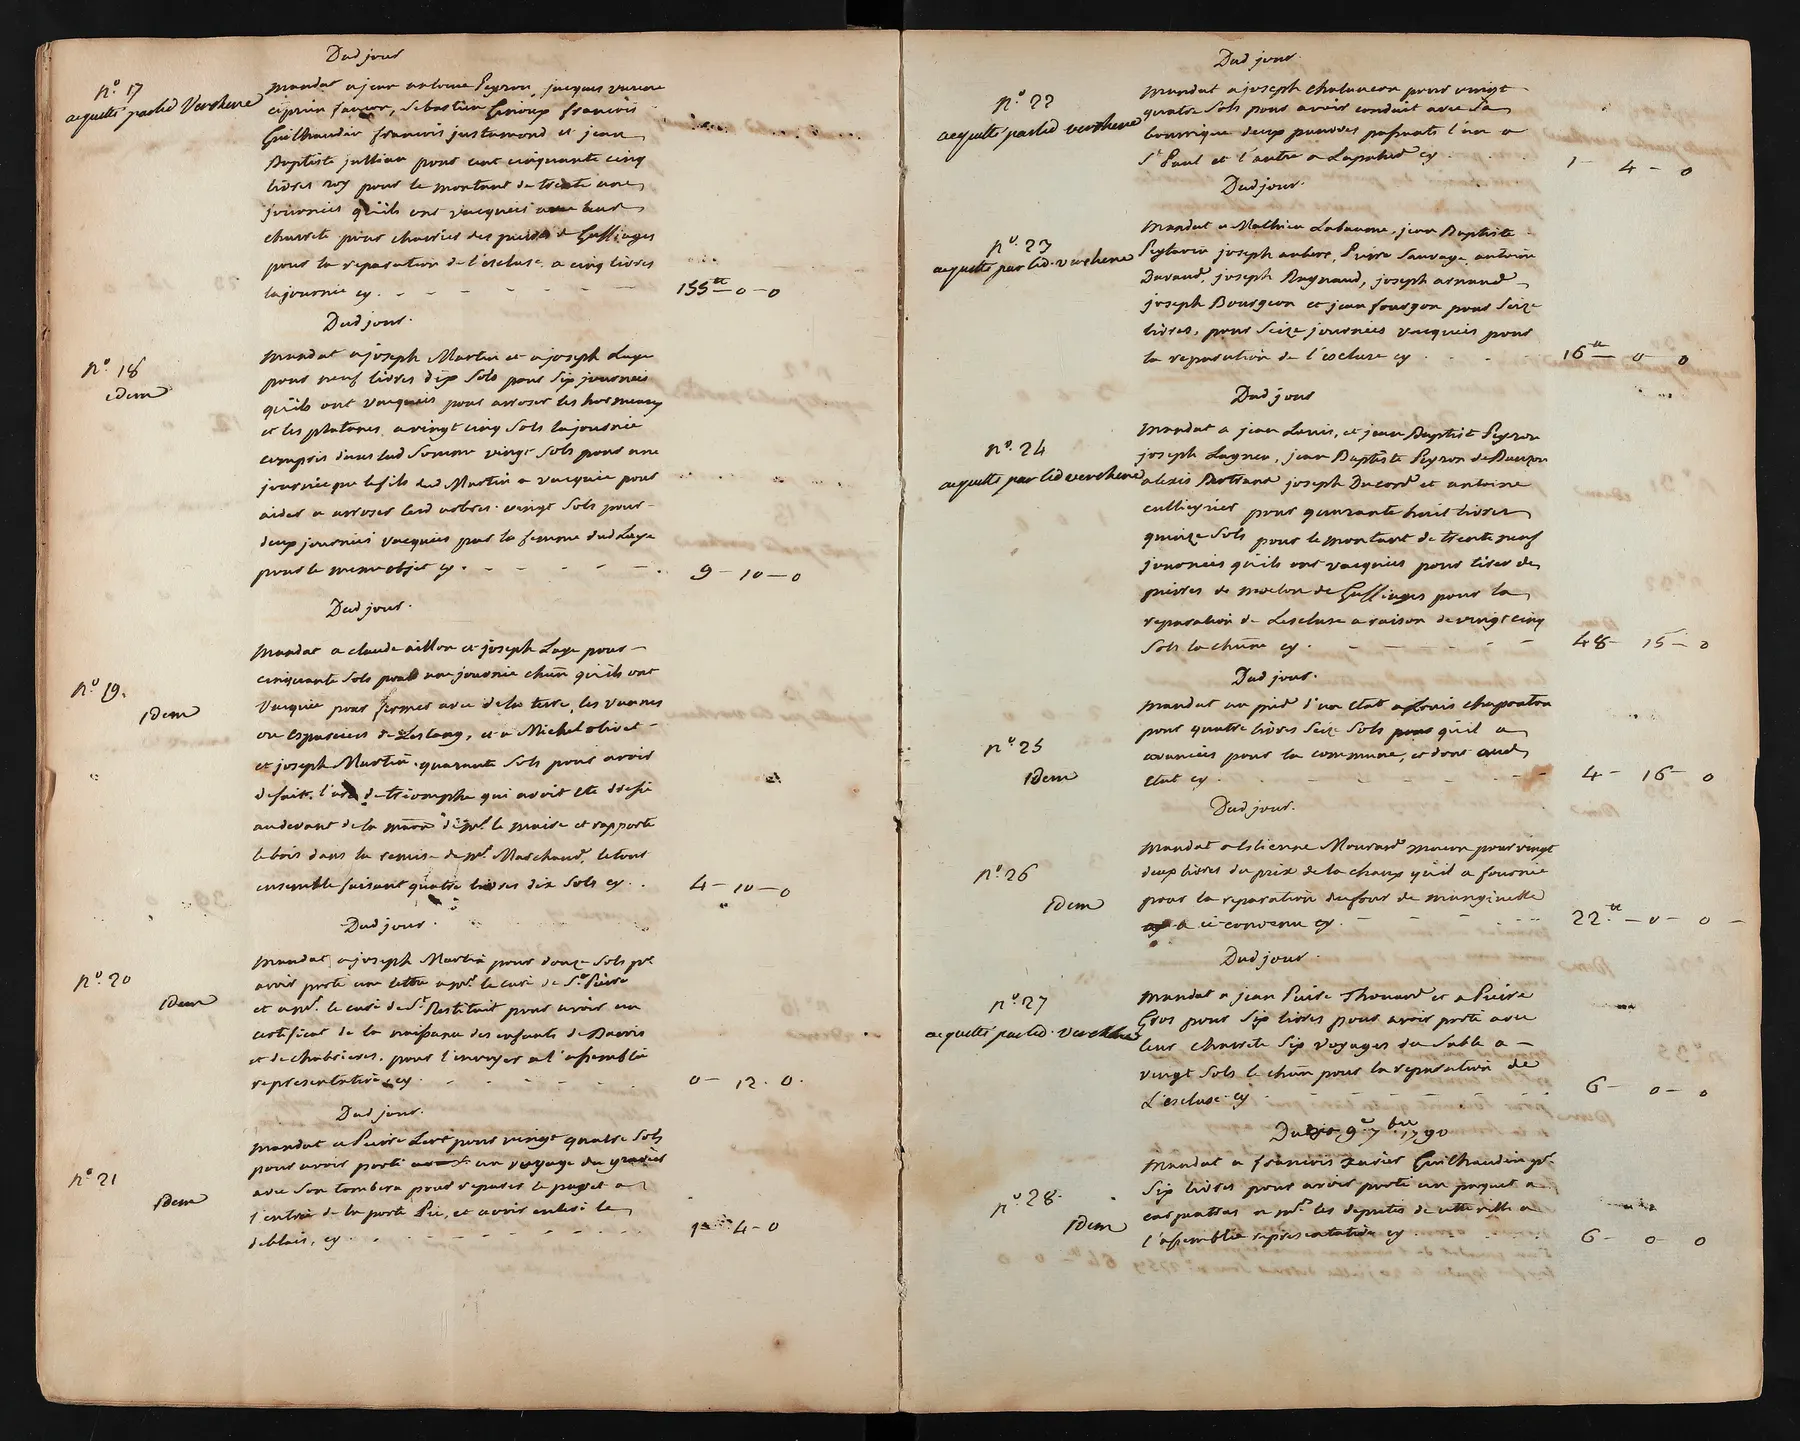 Dud jour
n.° 17
acquitté par led Verchere
mandat a jean antoine Peyron, jacques
ciprien faucon, Sebastien francois
Guilhaudin francois justamond et jean
Baptiste jullian pour cent cinquante cinq
livres pour le montant de trente une
journées qu'ils ont vacquéés avec leur
charrete pour charrier des pierres de
pour la reparation de l'escluse a cinq livres
la journée cy. 155 tt - 0 - 0
Dud jour.
n.° 18
idem
mandat a joseph Martin et a joseph Laye
pour neuf livres dix sols pour six journées
qu'ils ont vacquéés pour arroser les hormeaux
et les platanes a vingt cinq sols la journée
compris dans lad somme vingt sols pour une
journée que le fils dud Martin a vacquée pour
aider a arroser lesd arbres. vingt sols pour
deux journées vacquées par la femme dud Laye
pour le meme objet cy. 9 - 10 - 0
Dud jour.
n.° 19.
idem
mandat a claude aillon et joseph Laye pour
cinquante sols pour une journée chûn qu'ils ont
Vacquée pour fermer avec de la terre, les vannes
ou espaciers de Lestang, et a Michel olivet
et joseph Martin quarante sols pour avoir
defait l'arc de triomphe qui avoit eté dressé
audevant de la de mr. le maire et rapporté
le bois dans la remise de mr. Marchand, le tout
ensemble faisant quatre livres dix sols cy. 4 - 10 - 0
Dud jour.
n.° 20
idem
mandat a joseph Martin pour douze sols pr.
avoir porté une lettre a mr. le curé de St. Pierre
et a mr. le curé de St. Restitut pour avoir un
certificat de la naissance des enfants de
et de chabrieres. pour l'envoyer a l'assemblée
representative cy. 0 - 12. 0.
Dud jour.
n.° 21
idem
mandat a Pierre pour vingt quatre sols
pour avoir porté un voyage du gravier
avec son tombereau pour reparer le a
l'entrée de la porte Pic, et avoir enlevé le
deblais, cy. 1 - 4 - 0
Dud jour.
n.° 22
acquitté par led verchere
mandat a joseph chalancon pour vingt
quatre sols pour avoir conduit avec sa
bourrique deux pauvres passants l'un a
St. Paul et l'autre a Lapalud cy. 1 - 4 - 0
Dud jour.
n.° 23
acquitté par led. verchere
mandat a Mathieu Labaume, jean Baptiste
joseph aubere, Pierre Sauvage, antoine
Durand, joseph Raynaud, joseph arnaud
joseph Bourgeon et jean fourgon pour seize
livres, pour seize journées vacquéés pour
la reparation de l'escluse cy 16 tt - 0 - 0
Dud jour
n.° 24
acquitté par led verchere
mandat a jean Louis, et jean Baptiste Peyron
joseph Lagneu, jean Baptiste Peyron de
alexis Bertrand joseph Ducord et antoine
cullieyrier pour quarante huit livres
quinze sols pour le montant de trente neuf
journées qu'ils ont vacquéés pour tirer des
pierres de moelon de pour la
reparation de Lescluse a raison de vingt cinq
sols la chûne cy. 48 - 15 - 0
Dud jour.
n.° 25
idem
mandat au pied d'un etat a Louis chaponton
pour quatre livres seize sols qu'il a
avancées pour la commune, et dont aud
etat cy. 4 - 16 - 0
Dud jour.
n.° 26
idem
mandat a Estienne Mourard macon pour vingt
deux livres du prix de la chaux qu'il a fournie
pour la reparation du four de
a ce convenu cy. 22 tt - 0 - 0
Dud jour.
n.° 27
acquitté par led. Verchere
mandat a jean Pierre Thouard et a Pierre
Gros pour six livres pour avoir porté avec
leur charrete six voyages du sable a
vingt sols le chûn pour la reparation de
L'escluse cy 6 - 0 - 0
Dudit 9.e 7.bre 1790
n.° 28.
idem
mandat a francois xavier Guilhaudin pr.
six livres pour avoir porté un paquet a
carpentras a mrs. les deputés de cette ville a
l'assemblée representative cy 6 - 0 - 0